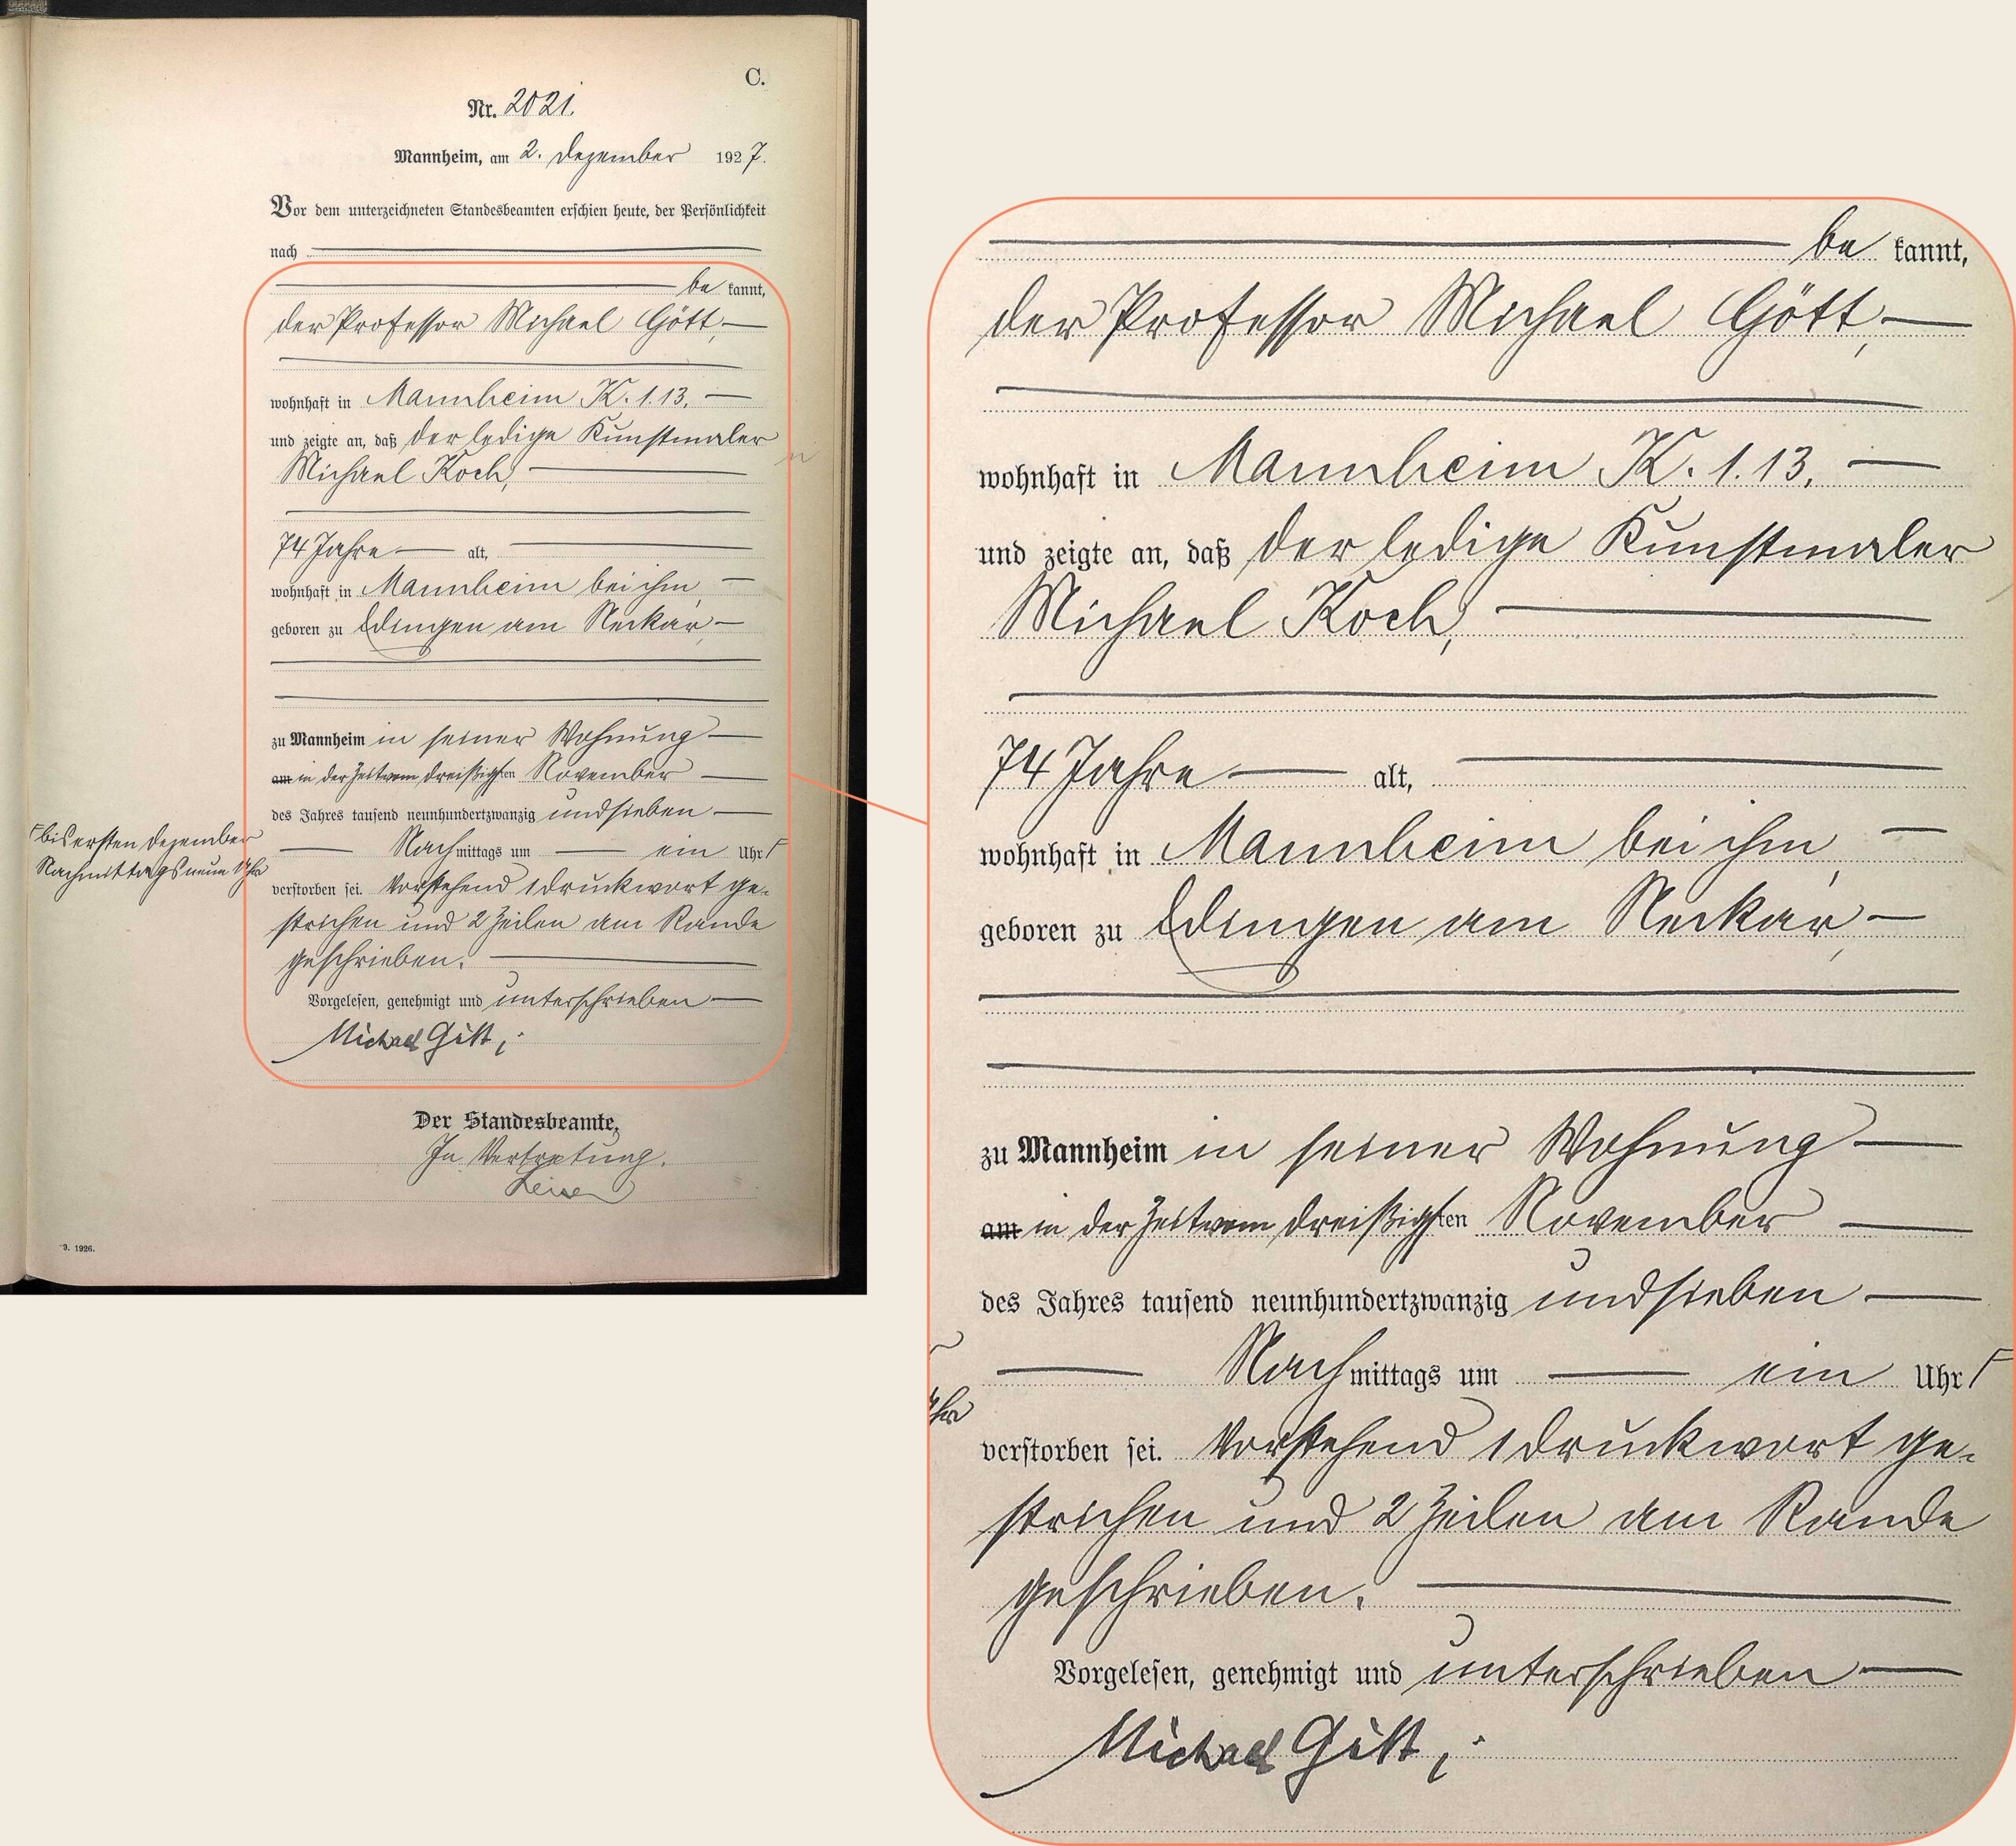 C.
Nr. 2021.
Mannheim, am 2. Dezember 1927.
Vor dem unterzeichneten Standesbeamten erschien heute, der Persönlichkeit
nach
be kannt,
der Professor Michael Gött,
wohnhaft in Mannheim K. 1. 13.
und zeigte an, daß der ledige Kunstmaler
Michael Koch,
74 Jahre alt,
wohnhaft in Mannheim bei ihm,
geboren zu Edingen am Neckar,
zu Mannheim in seiner Wohnung
am in der Zeit vom dreißigsten November
des Jahres tausend neunhundertzwanzig undsieben
Nachmittags um ein Uhr Γ
Γ bis ersten Dezember
Nachmittags neun Uhr
verstorben sei. Vorstehend 1 Druckwort ge-
strichen und 2 Zeilen am Rande
geschrieben.
Vorgelesen, genehmigt und unterschrieben
Michael Gött,
Der Standesbeamte,
In Vertretung.
9. 1926.
be kannt,
der Professor Michael Gött,
wohnhaft in Mannheim K. 1. 13.
und zeigte an, daß der ledige Kunstmaler
Michael Koch,
74 Jahre alt,
wohnhaft in Mannheim bei ihm,
geboren zu Edingen am Neckar,
zu Mannheim in seiner Wohnung
am in der Zeit vom dreißigsten November
des Jahres tausend neunhundertzwanzig undsieben
Nachmittags um ein Uhr Γ
Uhr
verstorben sei. Vorstehend 1 Druckwort ge-
strichen und 2 Zeilen am Rande
geschrieben.
Vorgelesen, genehmigt und unterschrieben
Michael Gött,